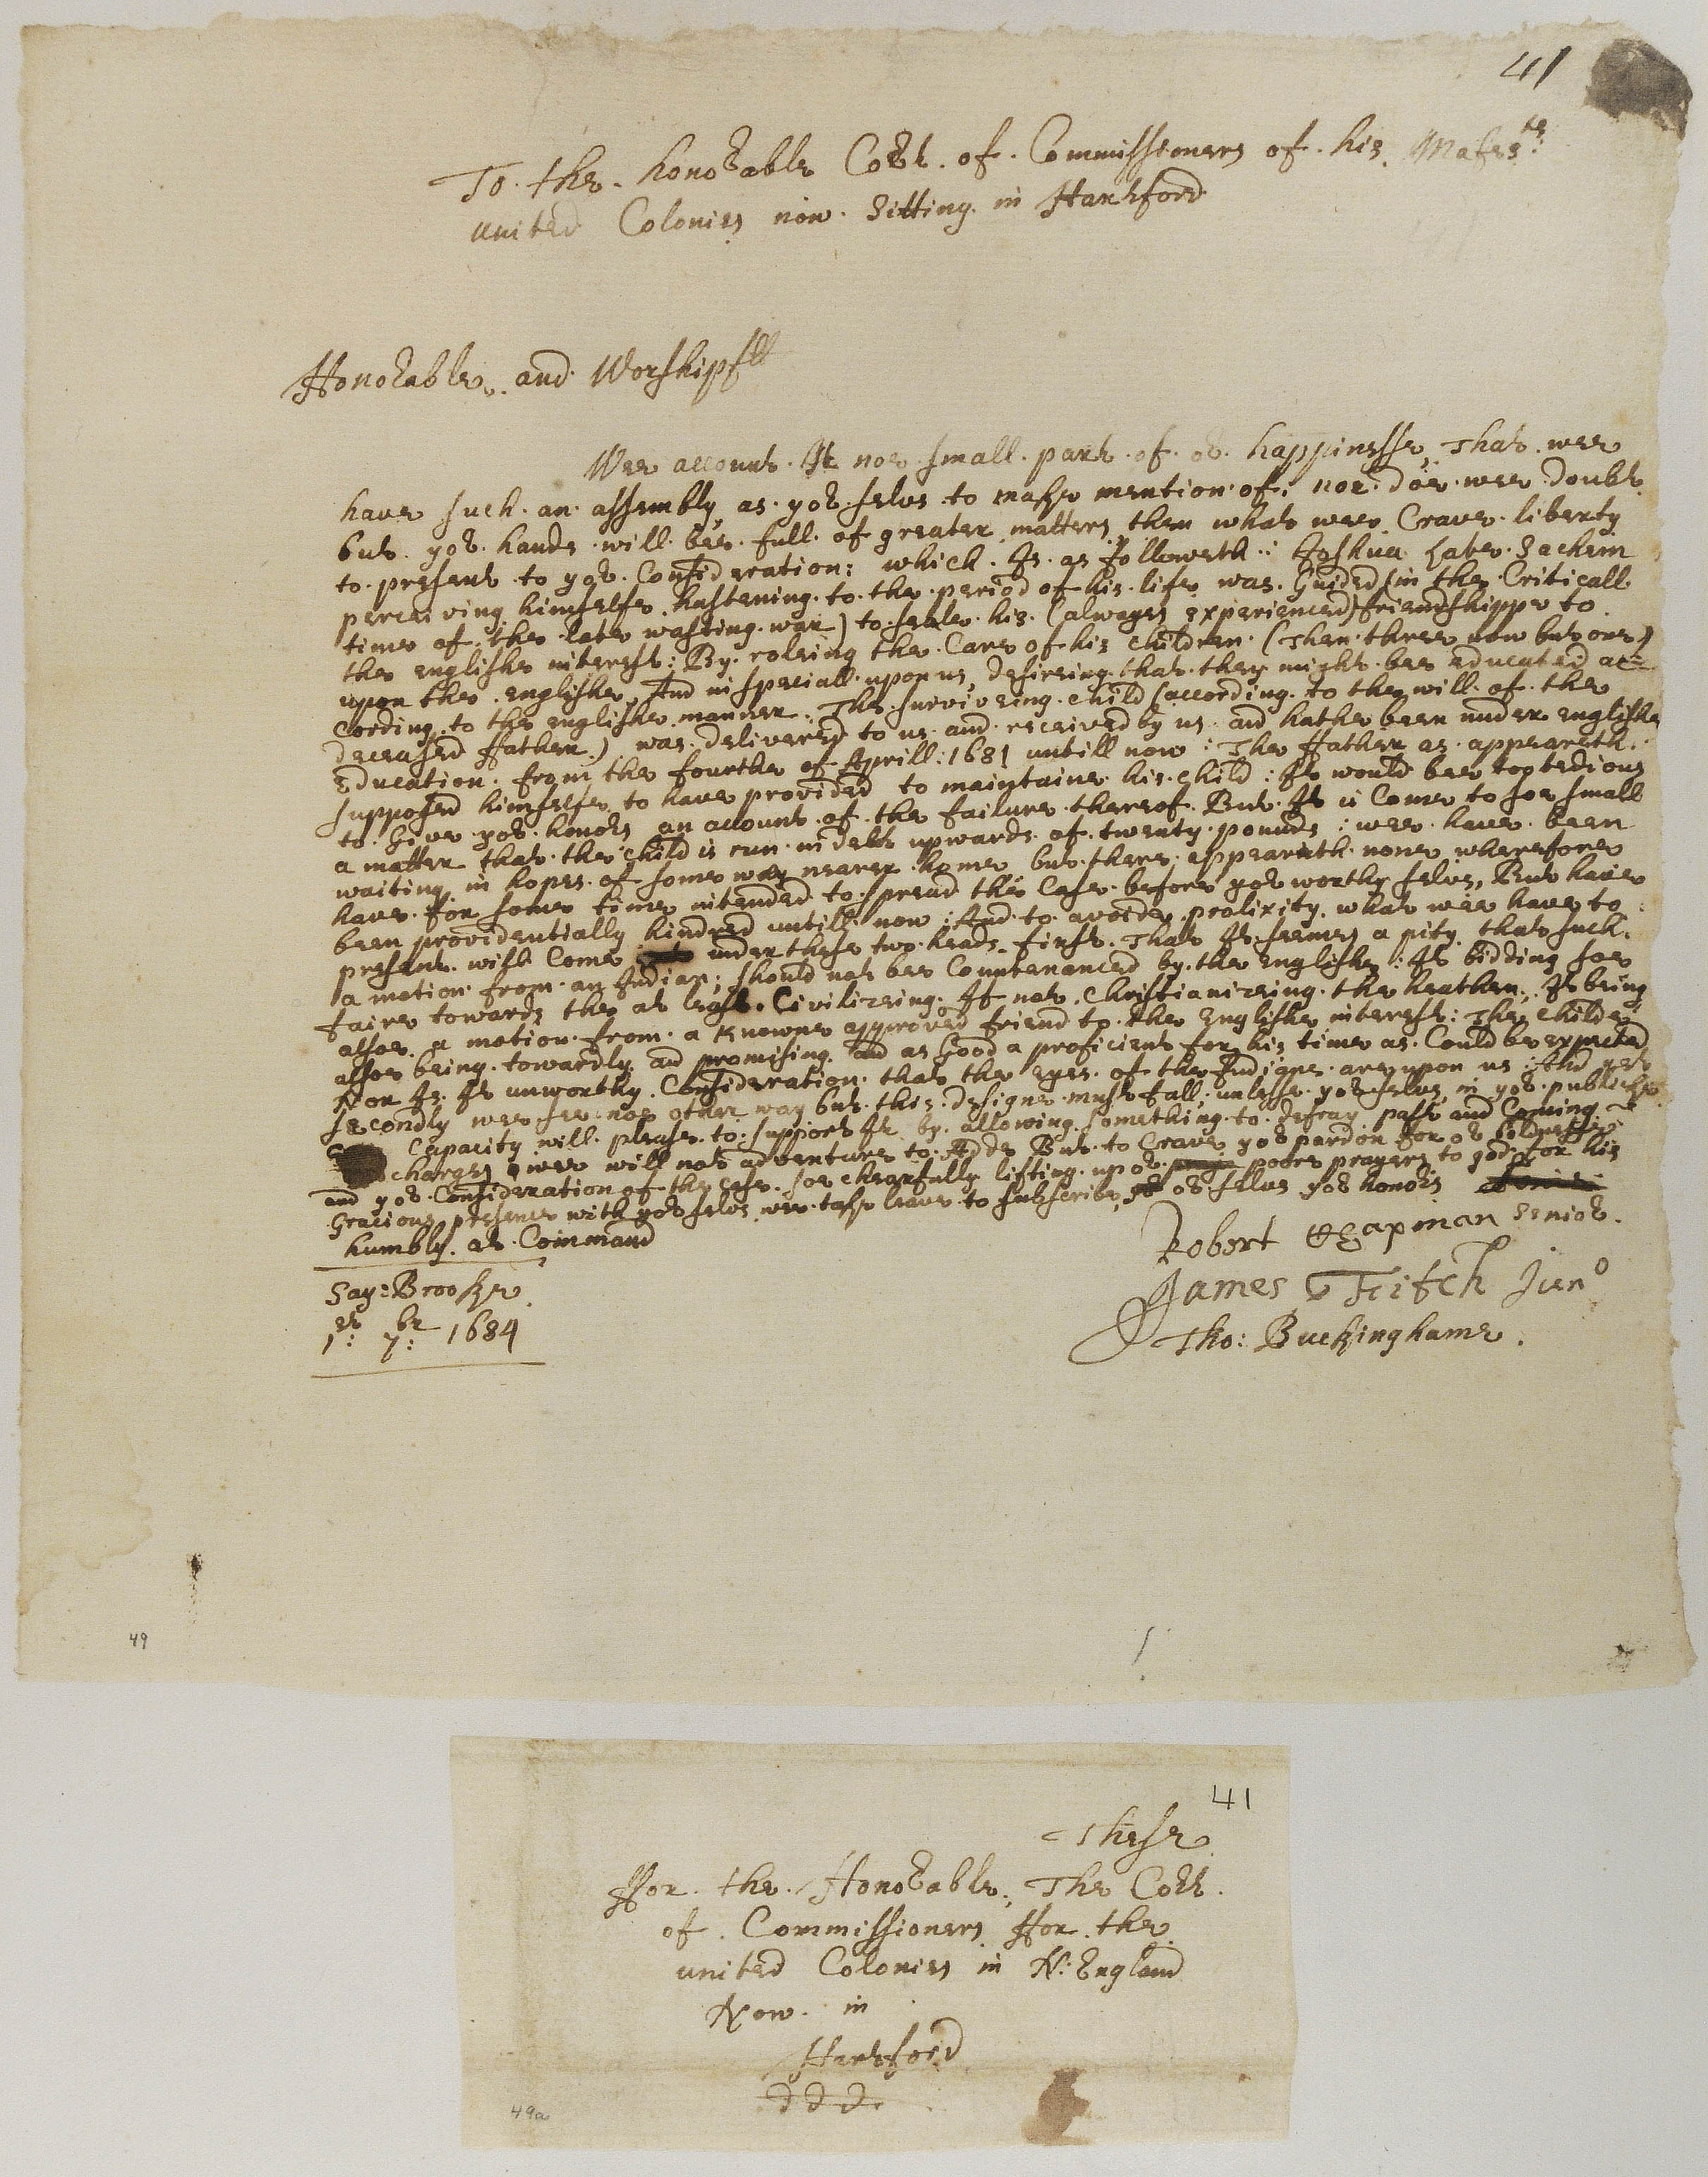 41
To the honorable Cort of Commissioners of his Majesties
united Colonies now Sitting in Hartford
Honorable and Worshipfll
Wee account It noe small part of or happinesse, That wee
have such an assembly as yor selves to make mention of, nor doe wee doubt
but yor hands will bee full of greater matters then what wee Crave liberty
to present to yor Consideration: which Is as followeth: Joshua late Sachem
perceiving himselfe hastening to the period of his life was Guided (in the Criticall
time of the late wasting war) to seale his (alwayes experienced) friendshippe to
the englishe interest: By roleing the Care of his Children (Then three now but one)
upon the englishe, And in speciall upon us, desireing that they might bee educated ac=
cording to the englishe manner: The surviveing child (according to the will of the
deceased ffather) was delivered to us and received by us and hathe been under englishe
Education from the fourthe of Aprill: 1681 untill now: The ffather as appeareth
supposed himselfe to have provided to maintaine his child: It would bee too tedious
to Give yor honors an account of the failure thereof But It is Come to soe small
a matter that the child is run in debt upwards of twenty pounds: wee have been
waiting in hopes of some way nearer home but there appeareth none wherefore
have for some time intended to spread this Case before yor worthy selves, But have
been providentially hindred untill now: And to avoide prolixity what wee have to
present will Come under these two heads first That It seemes a pity that such
a motion from an Indian; should not bee Countenanced by the englishe: It bidding soe
faire towards the at least Civilizeing If not Christianizeing the heathen; It being
alsoe a motion from a Knowne approved friend to the Englishe interest: The childe
alsoe being towardly and promising and as Good a proficient for his time as Could be expected
Nor Is It unworthy Consideration that the eyes of the Indians are upon us: And yet
secondly wee see noe other way but this designe must fall; unlesse yor selves in yor publicke
Capacity will please to support It by allowing something to defray past and Coming
charges, wee will not adventure to Adde But to Crave yor pardon for or boldnesse
and yor Consideration of the case soe chearfully lifting up or poore prayers to god for his
Gracious presence with yor selves wee take leave to subscribe or selves yor honors
humbly at Command
Robert Chapman Senior
James Fitch Juno
Tho: Buckinghame.
Say: Brooke
1st: 7br: 1684
49
41
These
ffor the Honorable, The Cort
of Commissioners ffor the
united Colonies in N: England
Now in
Hartford
ddd
49a